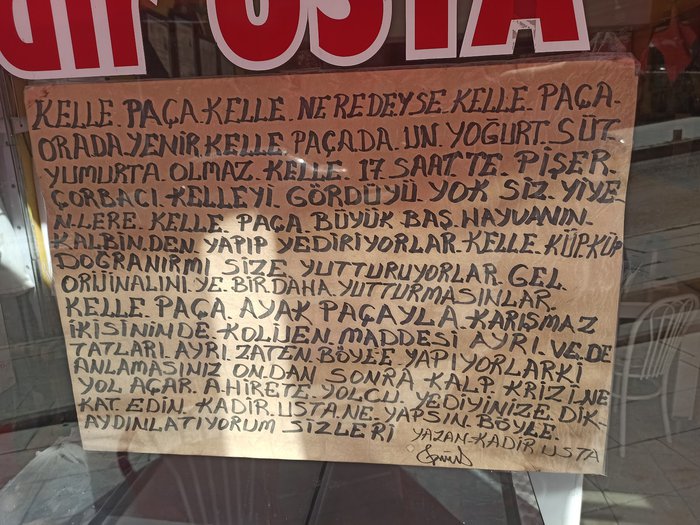 USTA
KELLE. PAÇA. KELLE. NEREDEYSE. KELLE. PAÇA.
ORADA. YENİR. KELLE. PAÇADA. UN. YOĞURT. SÜT.
YUMURTA. OLMAZ. KELLE. 17 SAAT.TE. PİŞER.
ÇORBACI. KELLEYİ. GÖRDÜYÜ. YOK SİZ. YİYE-
N.LERE. KELLE. PAÇA. BÜYÜK BAŞ. HAYVANIN.
KALBİN.DEN. YAPIP YEDİRİYORLAR. KELLE. KÜP.KÜP
DOĞRANIRMI SİZE. YUTTURUYORLAR. GEL.
ORİJİNALINI. YE. BİR DAHA. YUTTURMASINLAR.
KELLE. PAÇA. AYAK PAÇAYLA. KARIŞMAZ
İKİSİNİN DE. KOLİJEN. MADDESİ AYRI. VE. DE
TATLARI. AYRI. ZATEN. BÖYLE YAPIYORLARKİ
ANLAMASINIZ ON.DAN SONRA KALP KRİZİ.NE
YOL AÇAR. A.HİRETE. YOLCU. YEDİYİNİZE. DİK-
KAT. EDİN. KADİR. USTA. NE. YAPSIN. BÖYLE.
AYDINLATIYORUM SİZLERİ
YAZAN-KADİR USTA